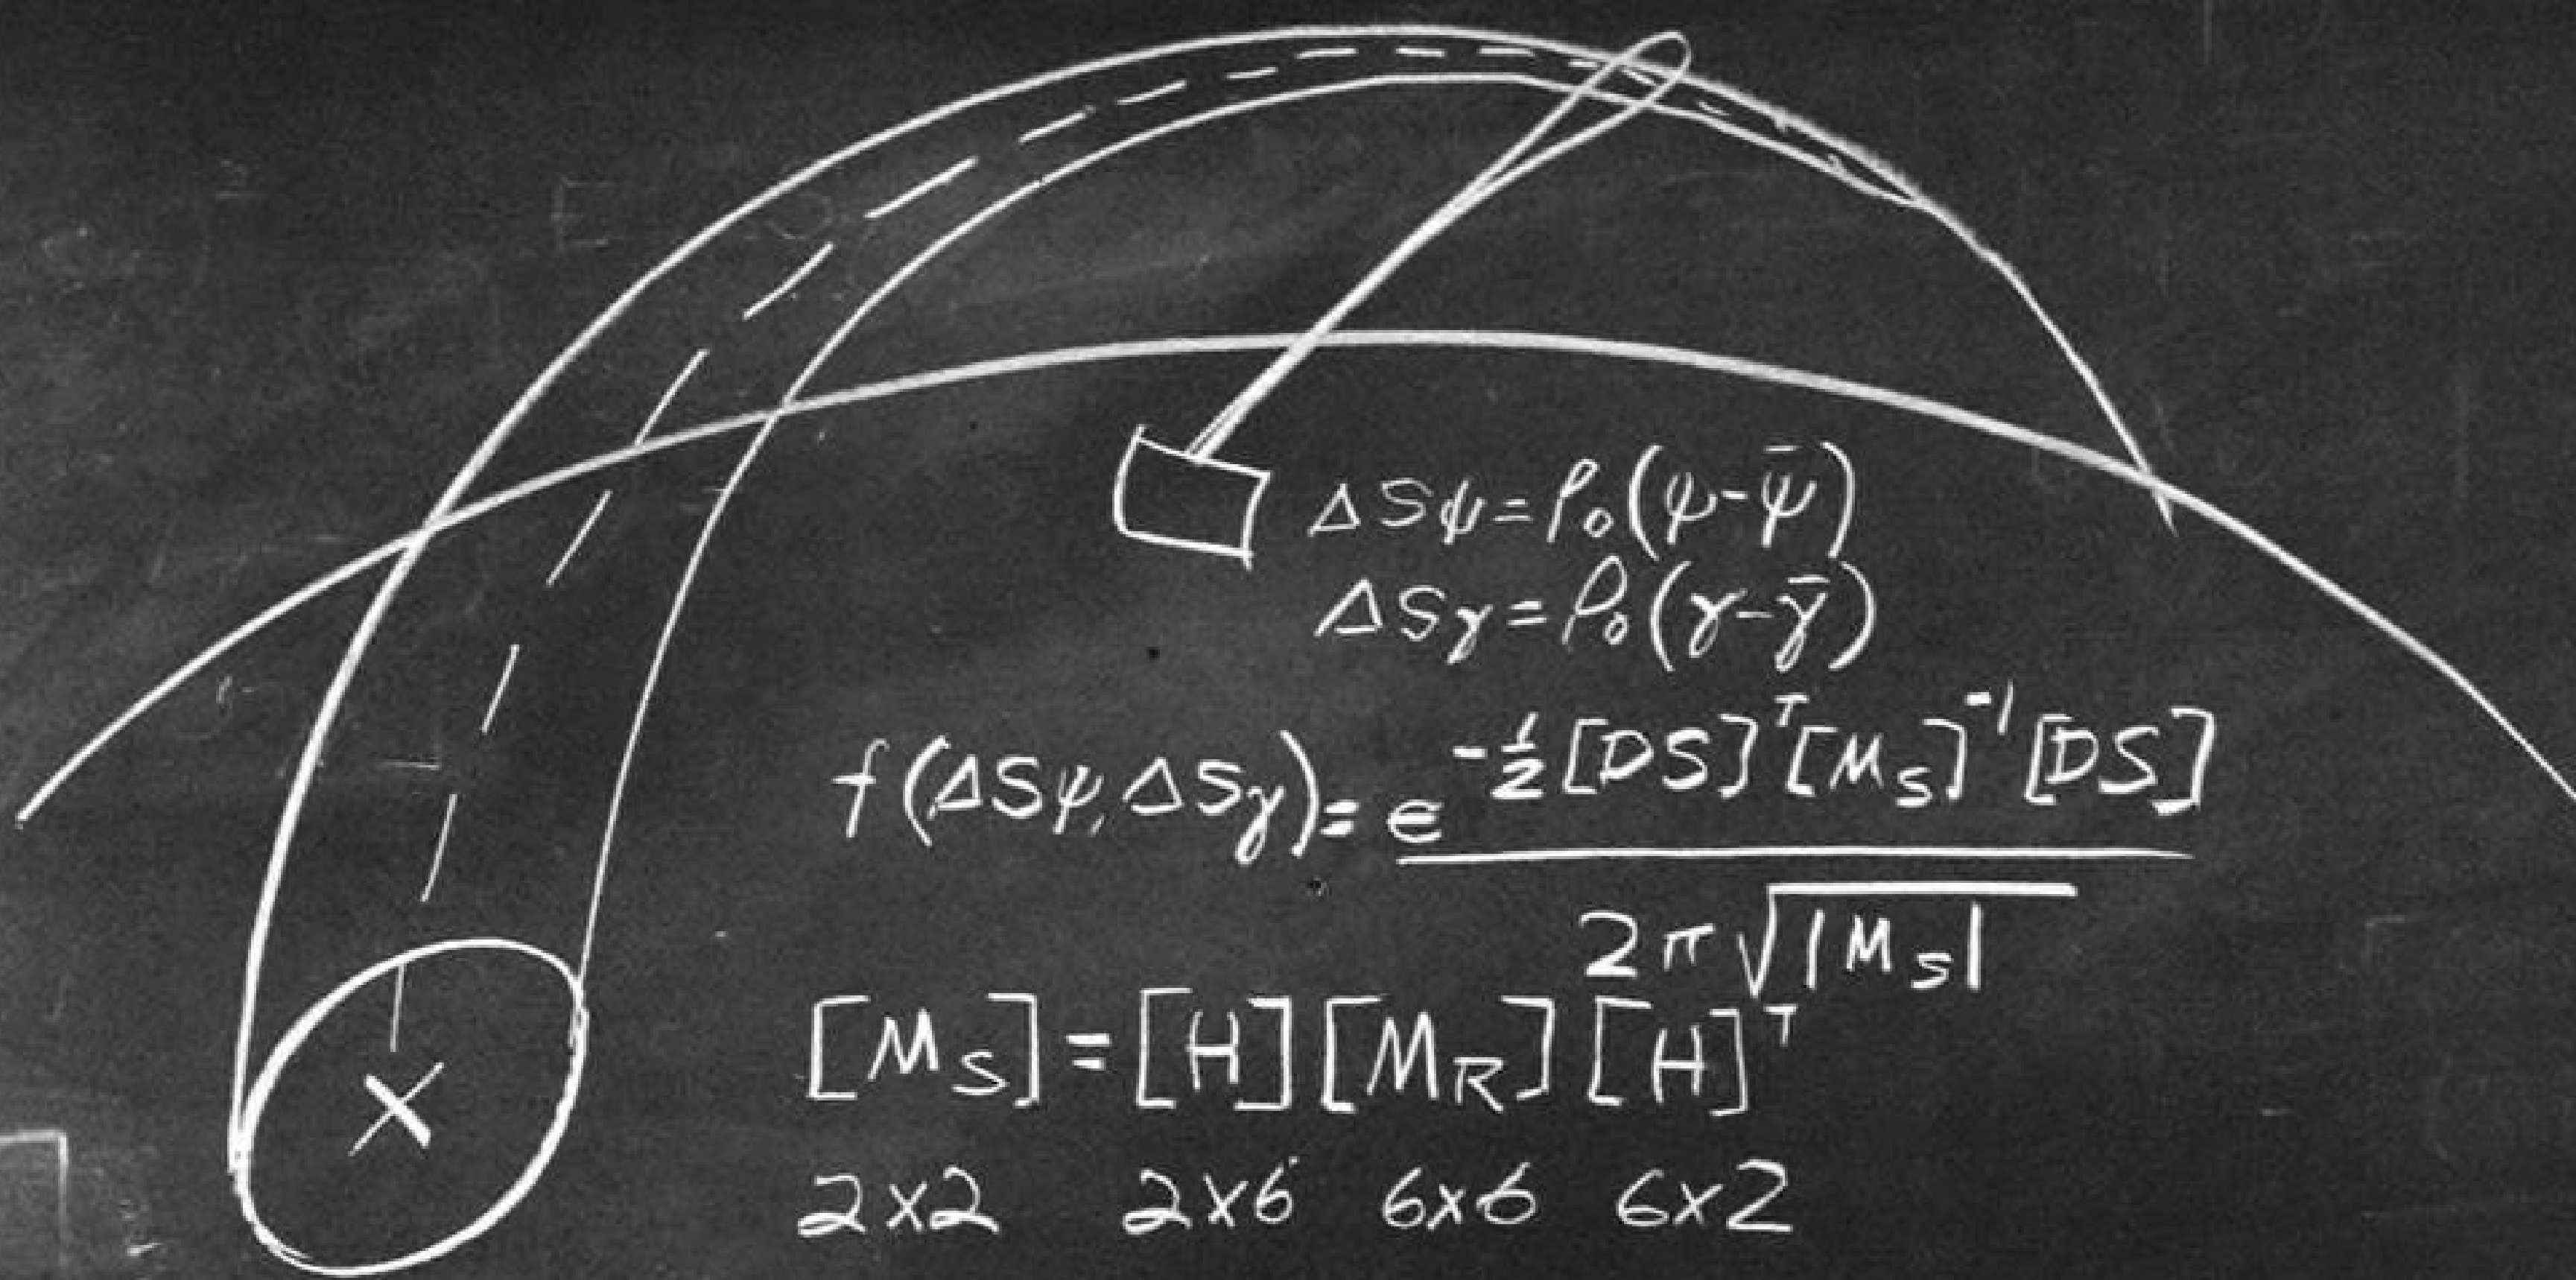 ΔSψ=ρ₀(ψ-ψ̄)
ΔSγ=ρ₀(γ-γ̄)
f(ΔSψ,ΔSγ)=e^{-1/2[DS]^T[M_S]^{-1}[DS]}
2π√|M_S|
[M_S]=[H][M_R][H]^T
2x2 2x6 6x6 6x2
X